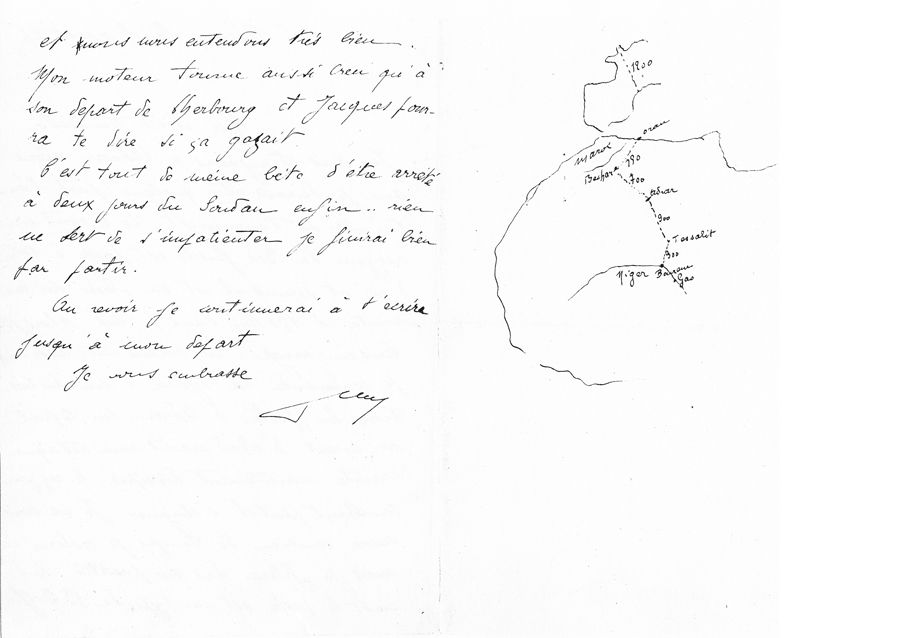 et nous nous entendons très bien.
Mon moteur tourne aussi bien qu'à
son départ de Cherbourg et Jacques pour-
ra te dire si ça gazait
C'est tout de même bête d'être arrêté
à deux jours du Soudan enfin.. rien
ne sert de s'impatienter je finirai bien
par partir.
Au revoir je continuerai à t'écrire
jusqu'à mon départ
Je vous embrasse
1200
oran
Maroc
Bechar
700
Adrar
900
Tessalit
300
Niger
Gao